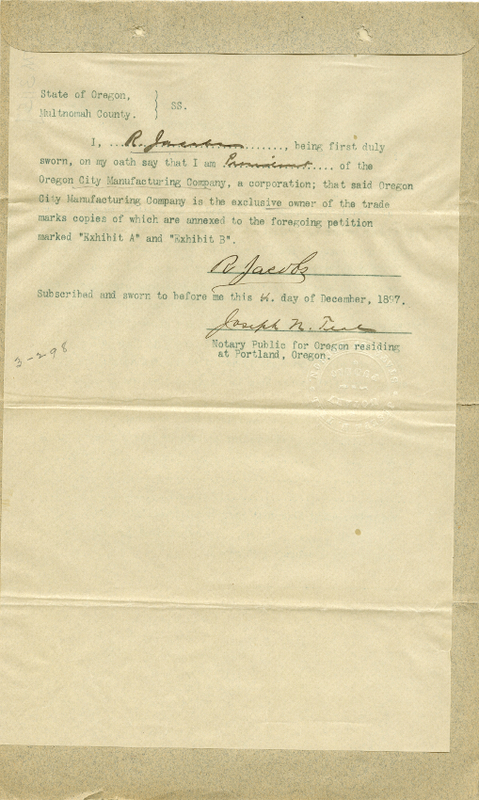 State of Oregon,
Multnomah County. } SS.
I, ...R. Jacobs..., being first duly
sworn, on my oath say that I am President...., of the
Oregon City Manufacturing Company, a corporation; that said Oregon
City Manufacturing Company is the exclusive owner of the trade
marks copies of which are annexed to the foregoing petition
marked "Exhibit A" and "Exhibit B".
R Jacobs
Subscribed and sworn to before me this day of December, 1897.
Joseph N. Teal
Notary Public for Oregon residing
at Portland, Oregon.
3-298